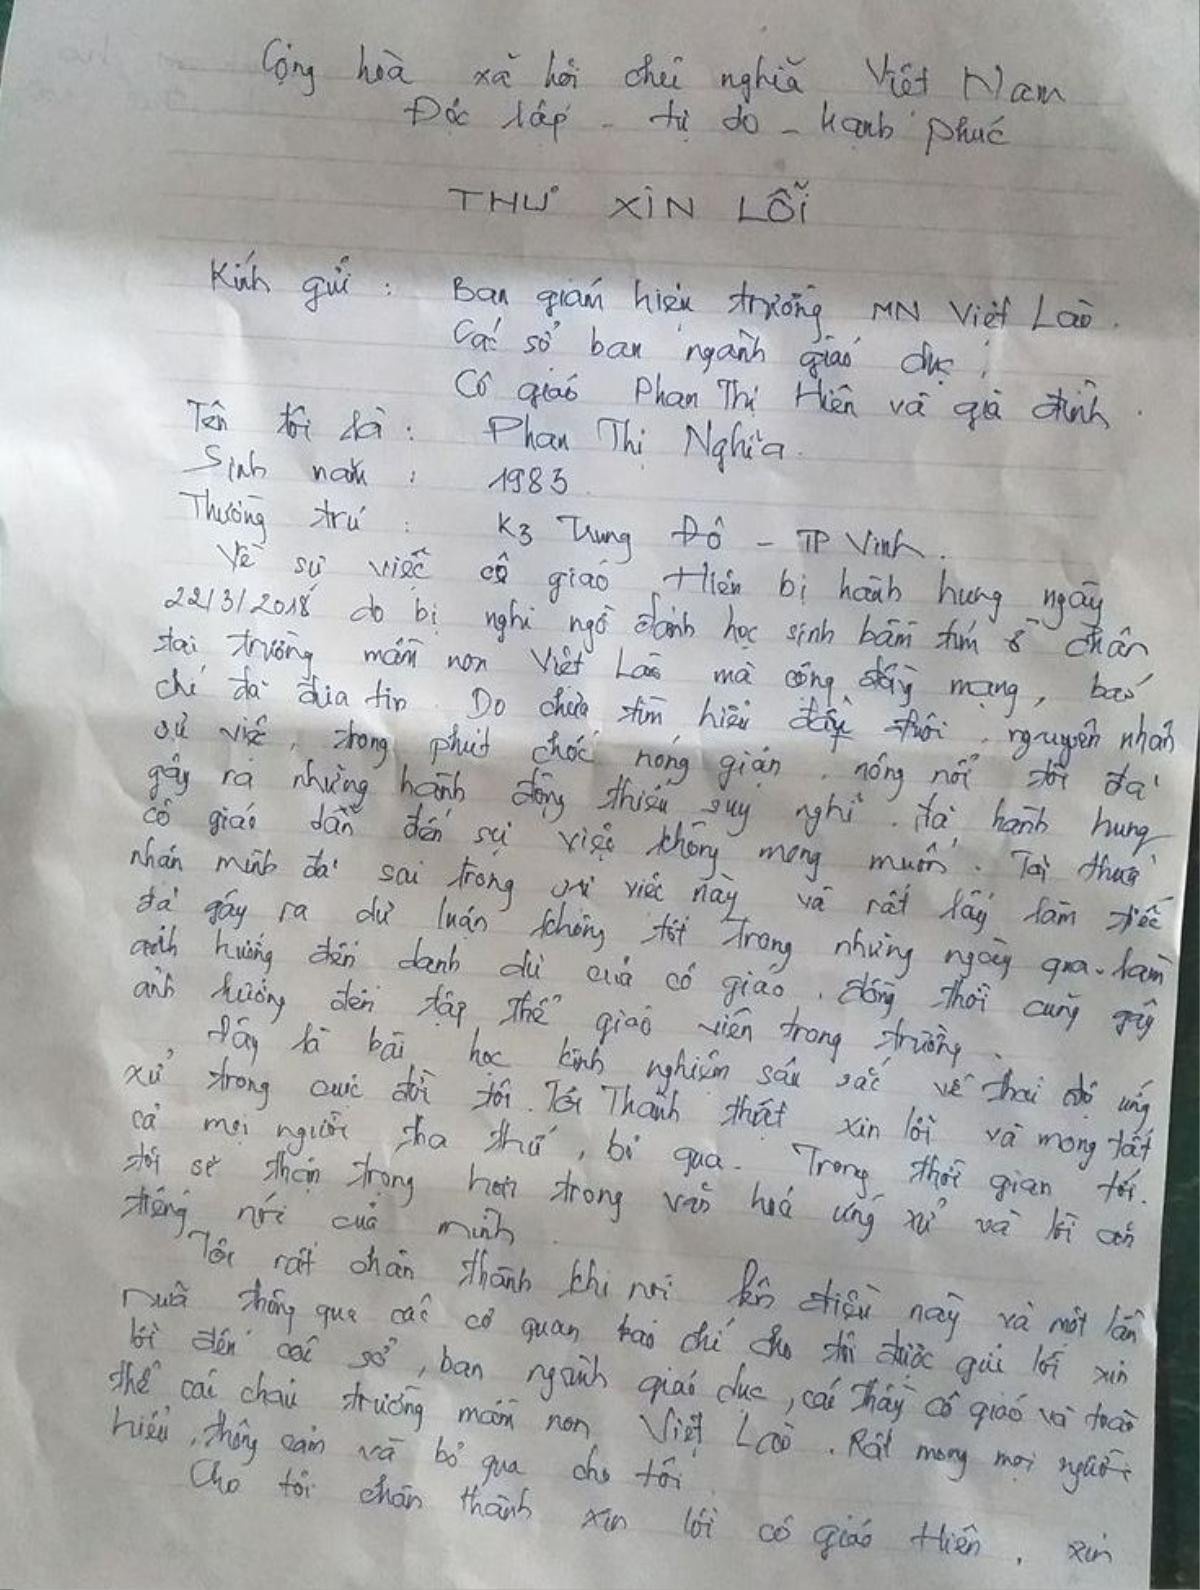 Cộng hoà xã hội chủ nghĩa Việt Nam
Độc lập - tự do - hạnh phúc
THƯ XIN LỖI
Kính gửi : Ban giám hiệu trường MN Việt Lào.
Các sở ban ngành giáo dục,
Cô giáo Phan Thị Hiền và gia đình.
Tên tôi là : Phan Thị Nghĩa.
Sinh năm : 1983.
Thường trú : K3 Trung Đô - TP Vinh.
Về sự việc cô giáo Hiền bị hành hung ngày
22/3/2018 do bị nghi ngờ đánh học sinh bầm tím ở chân
tại trường mầm non Việt Lào mà cộng đồng mạng, báo
chí đã đưa tin. Do chưa tìm hiểu đầu đuôi, nguyên nhân
sự việc, trong phút chốc nóng giận, nông nổi tôi đã
gây ra những hành động thiếu suy nghĩ, đã hành hung
cô giáo dẫn đến sự việc không mong muốn. Tôi thừa
nhận mình đã sai trong sự việc này và rất lấy làm tiếc
đã gây ra dư luận không tốt trong những ngày qua. làm
ảnh hưởng đến danh dự của cô giáo, đồng thời cũng gây
ảnh hưởng đến tập thể giáo viên trong trường.
Đây là bài học kinh nghiệm sâu sắc về thái độ ứng
xử trong cuộc đời tôi. Tôi Thành thật xin lỗi và mong tất
cả mọi người tha thứ, bỏ qua. Trong thời gian tới.
tôi sẽ thận trọng hơn trong văn hoá ứng xử và lời ăn
tiếng nói của mình.
Tôi rất chân thành khi nói lên điều này và một lần
nữa thông qua các cơ quan báo chí cho tôi được gửi lời xin
lỗi đến các sở, ban ngành giáo dục, các thầy cô giáo và toàn
thể các cháu trường mầm non Việt Lào. Rất mong mọi người
hiểu, thông cảm và bỏ qua cho tôi.
Cho tôi chân thành xin lỗi cô giáo Hiền, xin